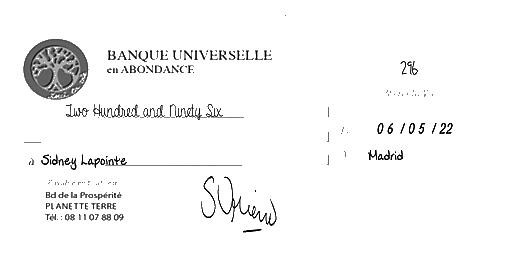 BANQUE UNIVERSELLE
en ABONDANCE
296
Two Hundred and Ninety Six
06/05/22
à Sidney Lapointe
Madrid
Bd de la Prospérité
PLANETTE TERRE
Tél. : 08 11 07 88 09